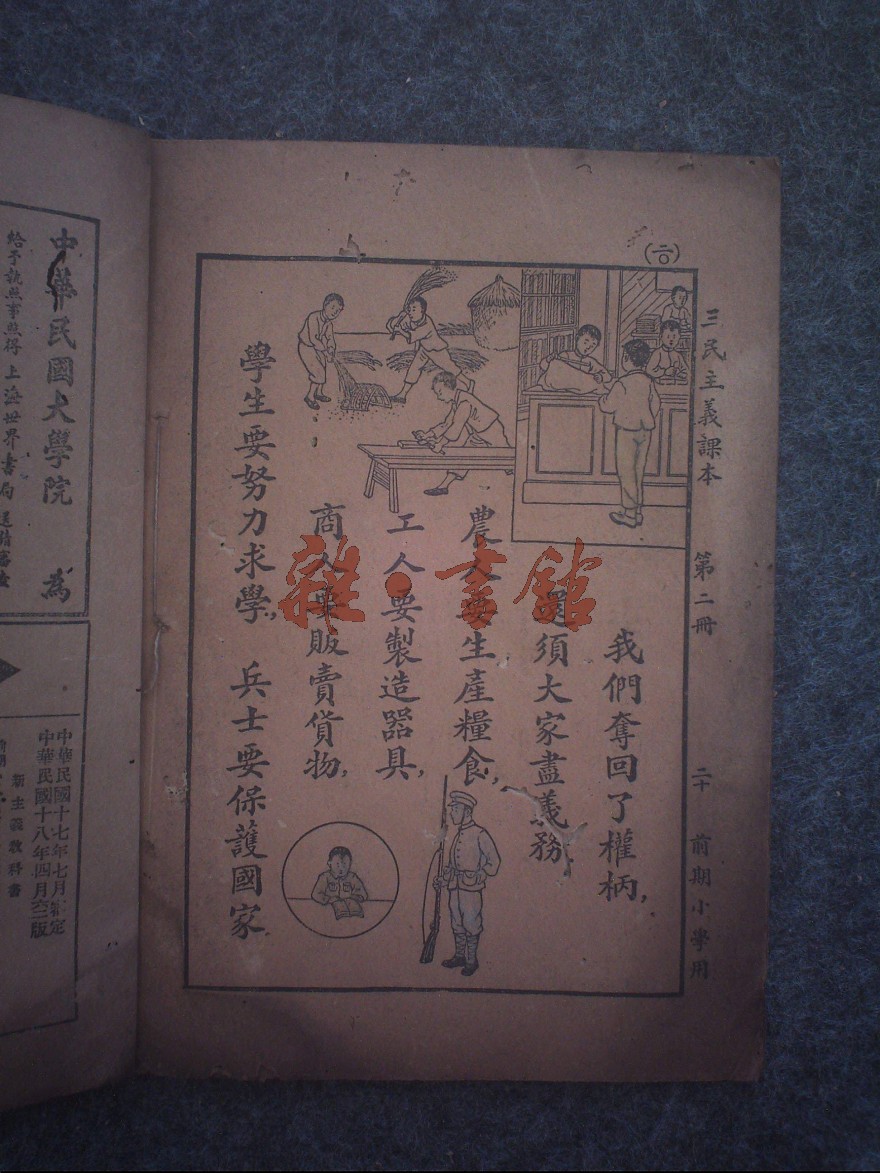 (二〇)
三民主義課本 第二冊 二十 前期小學用
我們奪回了權柄，
還須大家盡義務
農人要生產糧食，
工人要製造器具，
商人要販賣貨物，
學生要努力求學， 兵士要保護國家
雜·書館
中華民國大學院 為
上海世界書局
中華民國十七年七月
中華民國十八年四月 版
新主義教科書